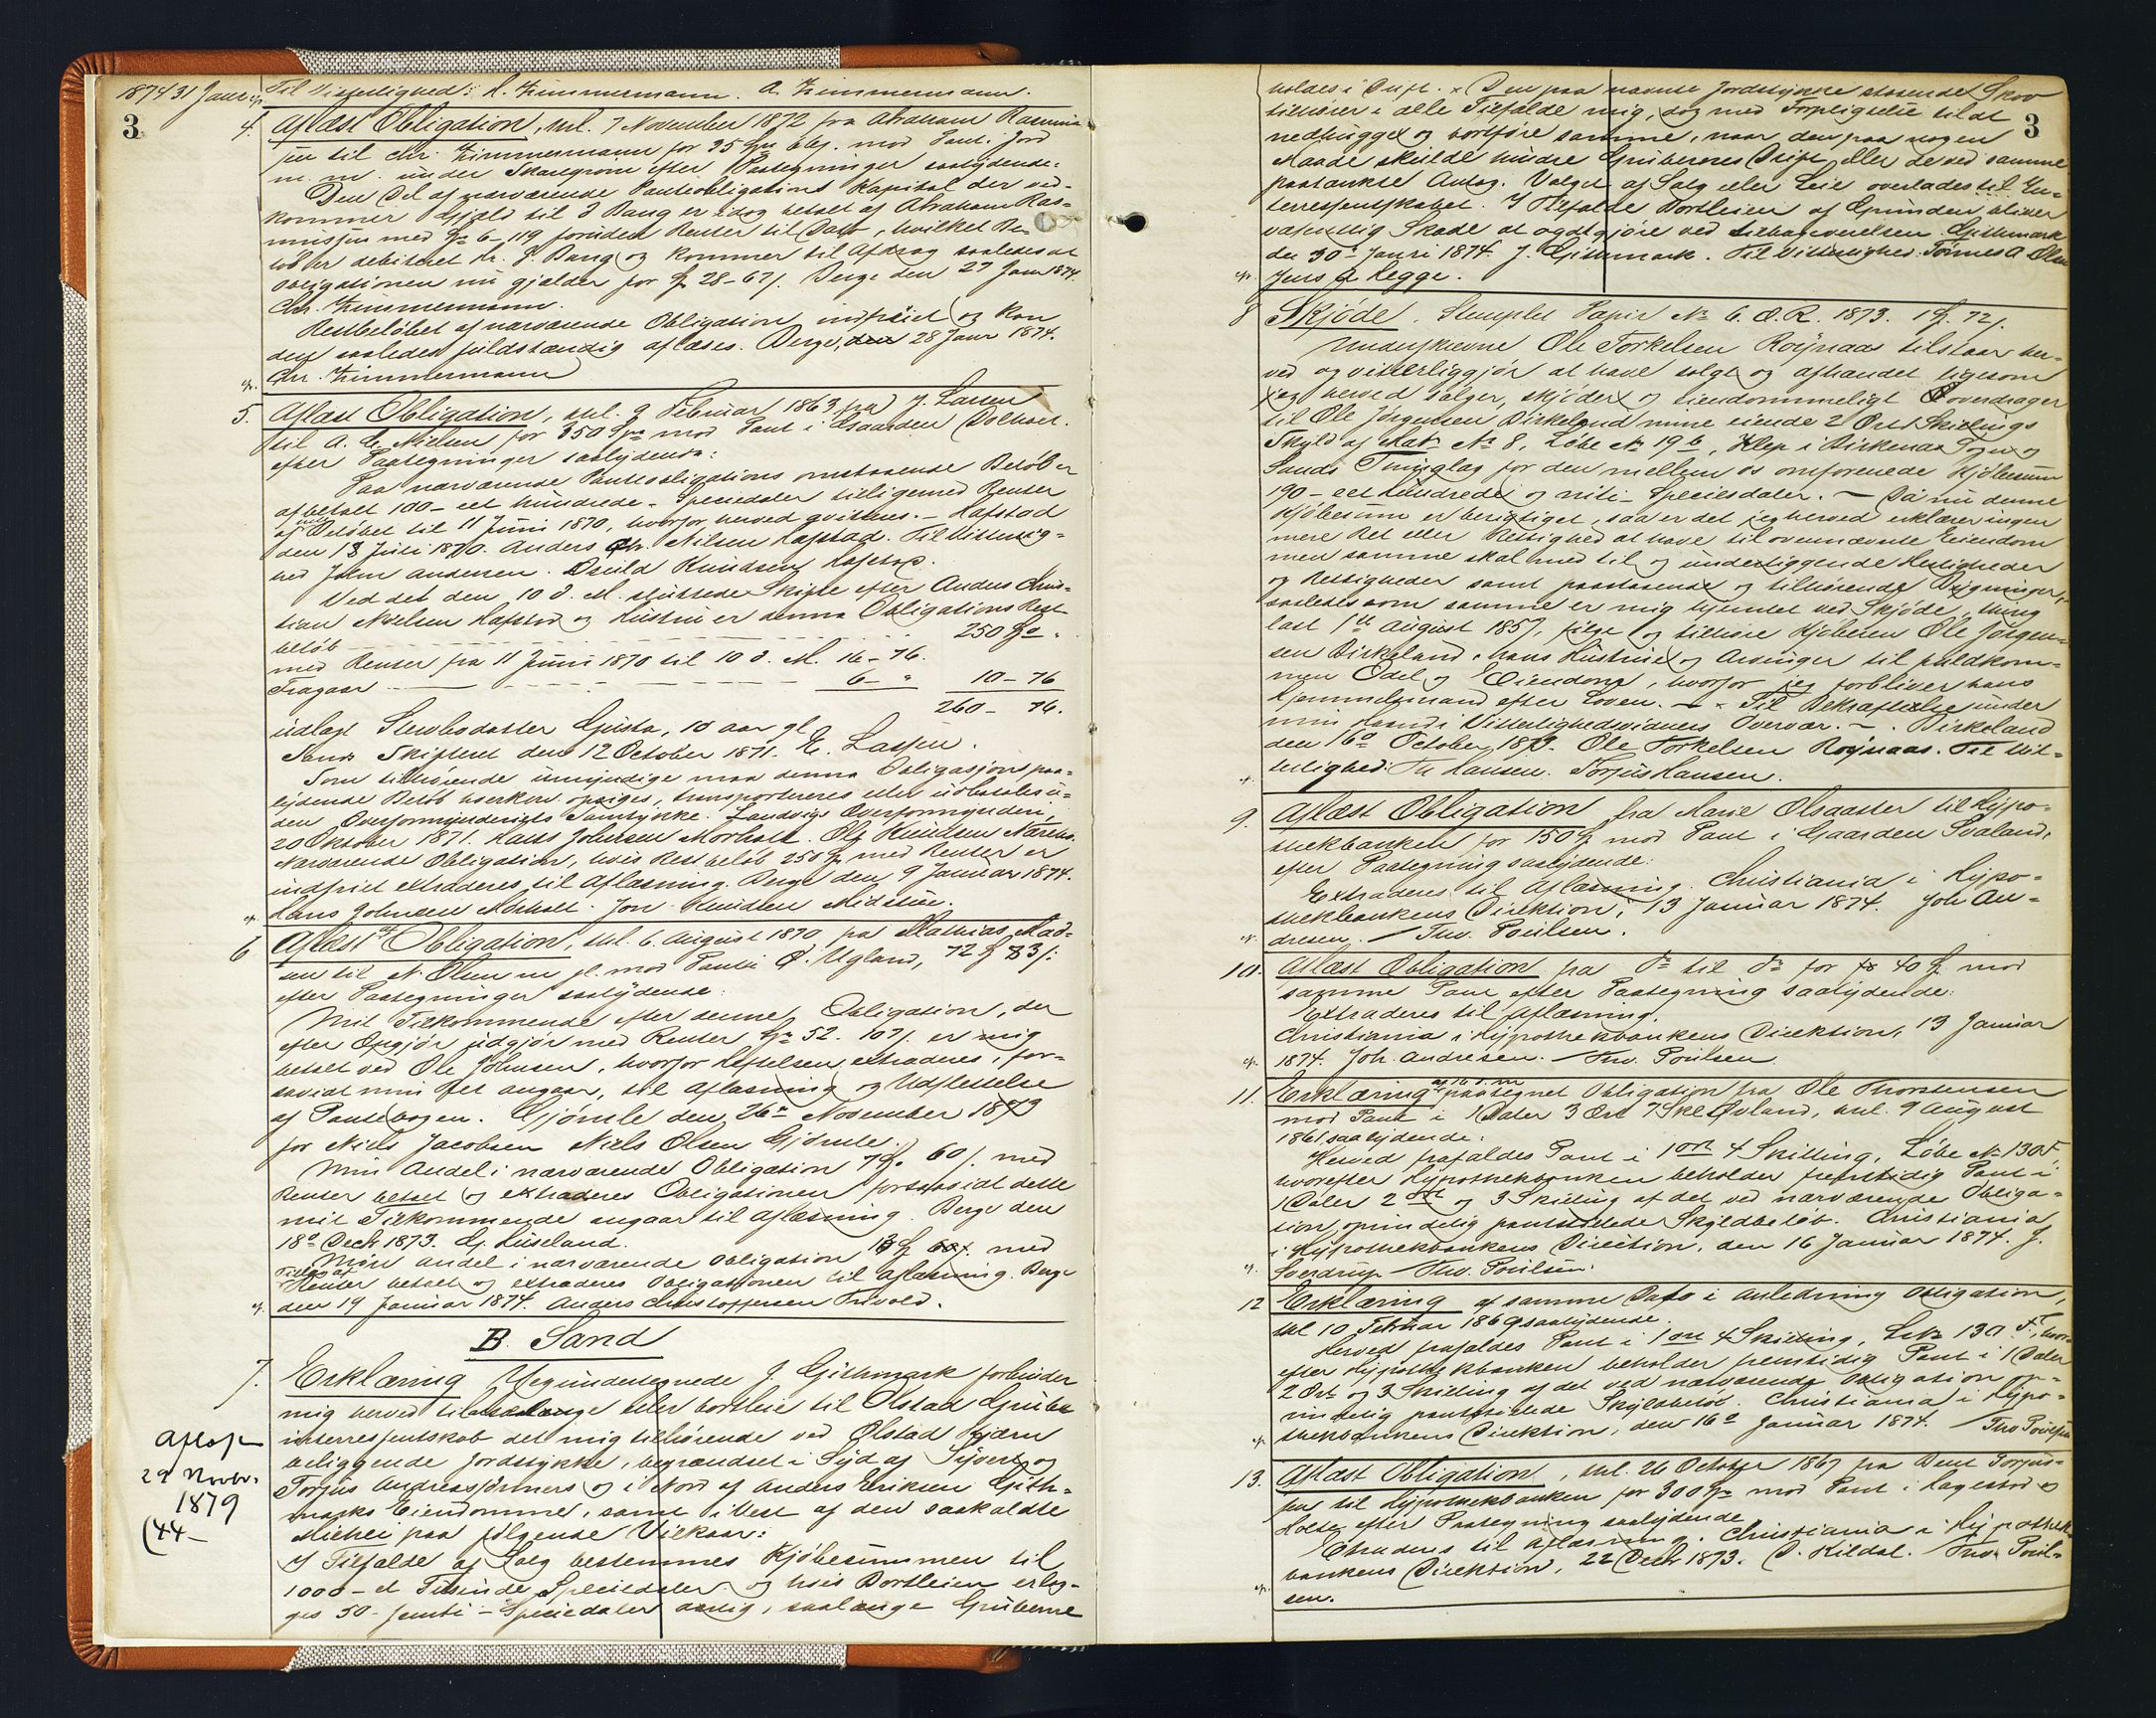 1874 31 Januar
3
Til Vitterlighed: A. Zimmermann. A. Zimmermann.
4. Aflæst Obligation, thl. 7 November 1872 fra Abraham Rasmus-
sen til Chr. Zimmermann for 35 Spd mod Pant i Jord
m. m. under efter Paategninger saalydende:
Den Del af nærværende Panteobligations Kapital der ved-
kommer Gjæld til J Bang er idag betalt af Abraham Ras-
mussen med Spd 6-119 foruden Renter til Dato, hvilket Be-
løb er debiteret Hr. J Bang og kommer til Afdrag saaledes at
Obligationen nu gjælder for Spd 28-67/. Berge den 27 Janr 1874.
Chr. Zimmermann.
Restbeløbet af nærværende Obligation indfriet og kan
den saaledes fuldstændig aflæses. Berge, den 28 Janr 1874.
Chr. Zimmermann
5. Aflæst Obligation, thl. 9 Februar 1863 fra J. Larsen
til A. C. Nielsen for 350 Spd mod Pant i Gaarden Dolholt.
efter Paategninger saalydende:
Paa nærværende Panteobligations omstaaende Beløb er
afbetalt 100 - eet hundrede - Speciedaler tilligemed Renter
af Beløbet til 11 Juni 1870, hvorfor herved qvitteres. - Hafstad
den 13 Juli 1870. Anders Chr. Nilsen Hafstad. Til Vitterlig-
hed John Andersen. Knudsen Hafstad.
Ved det den 10 d. M. sluttede Skifte efter Anders Chris-
tian Nielsen Hafstad og Hustru er denne Obligations Rest-
beløb 250 Spd
med Renter fra 11 Juni 1870 til 10 d. M. 16-76.
Fragaar 6 - " 10-76
260-76.
udlagt Stervbodatter Gusta, 10 aar gl.
Sands Skifteret den 12 October 1871. E. Lassen.
Som tilhørende umyndige maa denne Obligasjons paa-
lydende Beløb hverken opsiges, transporteres eller udbetales u-
den Overformynderiets Samtykke. Landvigs Overformynderi,
20 Oktober 1871. Hans Johnsen Morholt. Ole Knudsen
Nærværende Obligation, hvis Restbeløb 250 Spd med Renter er
indfriet extraderes til Aflæsning. Berge den 9 Januar 1874.
Hans Johnsen Morholt. Jon Knudsen
6 Aflæst Obligation, thl. 6. August 1870 fra Mathias Mad-
sen til N. Olsen m fl. mod Pant i Ø. Ugland, 72 Spd 83/:
efter Paategninger saalydende:
Mit Tilkommende efter denne Obligation, der
efter Opgjør udgjør med Renter Spd 52. 107/. er mig
betalt ved Ole Johnsen, hvorfor Heftelsen extraderes, for-
saavidt min Ret angaar, til Aflæsning og Udslettelse
af Pantebogen. Gjømle den 26de November 1873
for Niels Jacobsen Niels Olsen Gjømle.
Min Andel i nærværende Obligation 7 Spd. 60/. med
Renter betalt og extraderes Obligationen forsaavidt dette
mit Tilkommende angaar til Aflæsning. Berge den
18de Decbr 1873. G. Huseland.
Min Andel i nærværende Obligation 13 Spd 60/. med
Tillæg af
Renter betalt og extraderes Obligationen til Aflæsning. Berge
den 19 Januar 1874. Anders Christoffersen Trivold.
B. Sand
7. Erklæring Jeg undertegnede J. Githmark forbinder
mig herved til at sælge eller bortleie til Ølstad Grube
interressentskab det mig tilhørende ved Ølstad Kjærn
beliggende Jordstykke, begrændset i Syd af Sivert og
Torjus Andreassørners og i Nord af Anders Eriksen Gith-
marks Eiendomme, samt i Vest af den saakaldte
Michei paa følgende Vilkaar:
I Tilfælde af Salg bestemmes Kjøbesummen til
1000 - et Tusinde Speciedaler og hvis Bortleien erlæg-
ges 50 - femti - Speciedaler aarlig, saalænge Gruberne
Aflæst
29 Novbr.
1879
(44-
3
holdes i Drift. × Den paa nævnte Jordstykke staaende Skov
tilhører i alle Tilfælde mig, dog med Forpligtelse til at
nedhugge og bortføre samme, naar den paa nogen
Maade skulde hindre Grubernes Drift eller de ved samme
paatænkte Anlæg. Valget af Salg eller Leie overlades til In-
terressentskabet. I Tilfælde Bortleien af Grunden bliver
Skade at ogodtgjøre ved Tilbageverelsen. Githmark
den 30te Januar 1874. J. Githmark. Til Vitterlighed: Tønnes A Olsen
Jens A Hegge.
8 Skjøde. Stemplet Papir No 6. C. R. 1873. 1 Spd. 72/.
Underskrevne Ole Torkelsen Røynaas tilstaar her-
ved og vitterliggjør at have solgt og afhændet ligesom
jeg herved sælger, skjøder og Eiendommeligt overdrager
til Ole Jørgensen Birkeland mine eiende 2 Ort Skillings
Skyld af Matr No 8, Løbe No 19b, Klep i Birkenæs Sogn og
Sands Thinglag for den mellem os omforenede Kjøbesum
190 - eet hundrede og niti - Speciesdaler. - Da nu denne
Kjøbesum er berigtiget, saa er det jeg herved erklærer ingen
mere Ret eller Rettighed at have til ovennævnte Eiendom
men samme skal med til og underliggende Herligheder
og Rettigheder samt paastaaende og tilhørende Bygninger,
saaledes som samme er mig hjemlet ved Skjøde, thing-
læst 1ste August 1857, følge og tilhøre Kjøberen Ole Jørgen-
sen Birkeland, hans Hustrue og Arvinger til fuldkom-
men Odel og Eiendom, hvorfor jeg forbliver hans
Hjemmelsmand efter Loven. - × Til Bekræftelse under
min Haand i Vitterlighedsvidners Overvær. - . Birkeland
den 16de October 1873. Ole Torkelsen Røynaas. Til Vit-
terlighed: Th Hansen. Torjus Hansen.
9. Aflæst Obligation fra Marie Olsdatter til Hypo-
thekbanken for 150 Spd mod Pant i Gaarden Svaland,
efter Paategning saalydende:
Extraderes til Aflæsning. Christiania i Hypo-
thekbankens Direktion, 13 Januar 1874. Joh An-
dresen. - Thv. Poulsen.
10. Aflæst Obligation fra Do til Do for 40 Spd mod
samme Pant efter Paategning saalydende:
Extraderes til Aflæsning.
Christiania i Hypothekbankens Direktion, 13 Januar
1874. Joh. Andresen. - Thv. Poulsen
11. Erklæring af 16 d. M. paategnet Obligation fra Ole Thorstensen
mod Pant i 1 Daler 3 Ort 7 Skl Øvland, thl. 9 August
1861, saalydende:
Herved frafaldes Pant i 1 Ort 4 Skilling, Løbe No 130F,
hvorefter Hypothekbanken beholder fremtidig Pant i
1 Daler 2 Ort og 3 Skilling af det ved nærværende Obliga-
tion oprindelig pantsatte Skyldbeløb. Christiania
i Hypothekbankens Direction, den 16 Januar 1874. J.
Sverdrup - Thv. Poulsen.
12 Erklæring af samme Dato i Anledning Obligation,
thl 10 Februar 1869 saalydende.
Herved frafaldes Pant i 1 Ort 4 Skilling, L No 130 F, hvor-
efter Hypothekbanken beholder fremtidig Pant i 1 Daler
2 Ort og 3 Skilling af det ved nærværende Obligation op-
rindelig pantsatte Skyldbeløb. Christiania i Hypo-
thekbankens Direktion, den 16de Januar 1874. - Thv Poulsen
13. Aflæst Obligation, thl. 26 October 1867 fra Bent Torjus-
sen til Hypothekbanken for 300 Spd mod Pant i Hagestad og
Holte efter Paategning saalydende
Extraderes til Aflæsning. Christiania i Hypothek-
bankens Direktion, 22 Decbr 1873. D. Kildal. Thv. Poul-
sen.